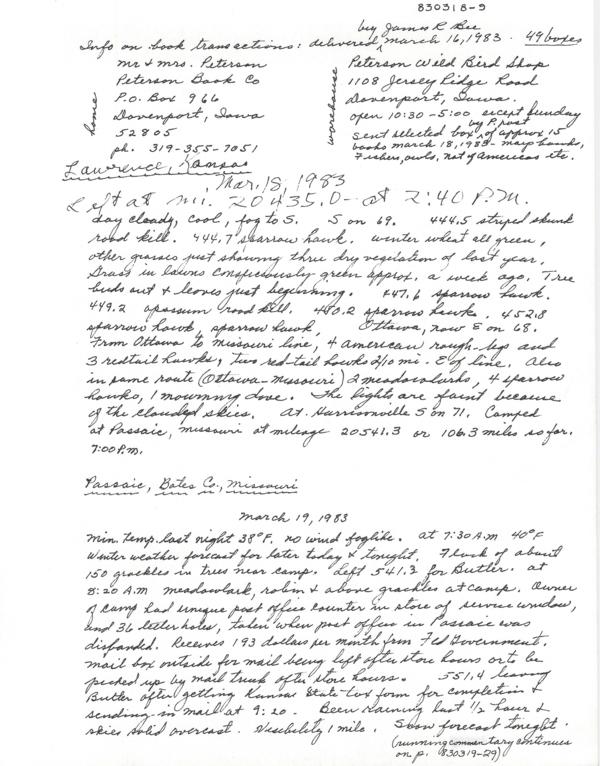 830318-9
by James R Bee
Info on book transactions: delivered ^ March 16, 1983. 49 boxes
home
Mr & Mrs. Peterson
Peterson Book Co
P.O. Box 966
Davenport, Iowa
52805
ph. 319-355-7051
warehouse
Peterson Wild Bird Shop
1108 Jersey Ridge Road
Davenport, Iowa.
open 10:30-5:00 except Sunday
by P. post
Sent selected box ^ of approx 15
books March 18, 1983 - map hawks,
Fishers, owls, nat of Americas etc.
Lawrence, Kansas
Mar. 18, 1983
Left at mi. 20435.0 - at 2:40 P.M.
day cloudy, cool, fog to S. S on 69. 444.5 striped skunk
road kill. 444.7 sparrow hawk. winter wheat all green,
other grasses just showing thru dry vegetation of last year.
Grass in lawns conspicuously green approx. a week ago. Tree
buds out & leaves just beginning. 447.6 sparrow hawk.
449.2 opossum road kill. 450.2 sparrow hawks. 452.8
sparrow hawk, sparrow hawk, Ottawa, now E on 68.
From Ottawa to Missouri line, 4 american rough-legs and
3 redtail hawks; two red-tail hawks 2/10 mi. E of line. Also
in same route (Ottawa-Missouri) 2 meadowlarks, 4 sparrow
hawks, 1 mourning dove. The lights are faint because
of the clouded skies. At Harrisonville S on 71. Camped
at Passaic, Missouri at mileage 20541.3 or 106.3 miles so far.
7:00 P.m.
Passaic, Bates Co., Missouri
March 19, 1983
Min. temp. last night 38°F. no wind foglike. at 7:30 A.M 40°F
Winter weather forecast for later today & tonight. Flock of about
150 grackles in trees near camp. Left 541.3 for Butler. at
8:20 A.M meadowlark, robin & above grackles at camp. Owner
of camp had unique post office counter in store of service window,
and 36 letter holes, taken when post office in Passaic was
disfanded. Receives 193 dollars per month from Fed Government.
mail box outside for mail being left after store hours or to be
picked up by mail truck after store hours. 551.4 leaving
Butler after getting Kansas State tax form for completion &
sending in mail at 9:20. Been raining last 1/2 hour &
skies solid overcast. Visibility 1 mile. Snow forecast tonight.
(running commentary continues
on p. 830319-29)